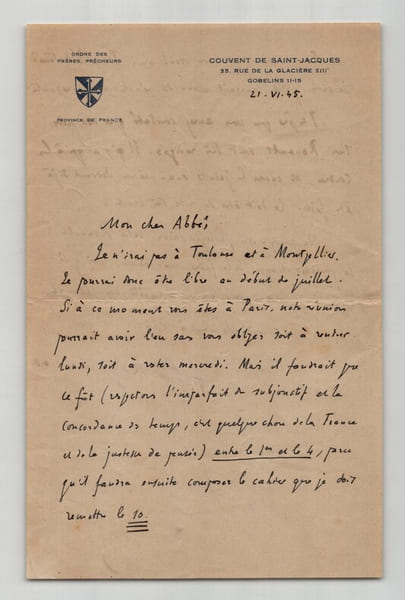 ORDRE DES
FRÈRES, PRÊCHEURS
PROVINCE DE FRANCE
COUVENT DE SAINT-JACQUES
35, RUE DE LA GLACIÈRE XIIIᵉ
GOBELINS 11-15
21-VI-45.
Mon cher Abbé,
Je n'irai pas à Toulouse et à Montpellier.
Je pourrai donc être libre au début de juillet.
Si à ce moment vous êtes à Paris, notre réunion
pourrait avoir lieu sans vous obliger soit à rentrer
lundi, soit à rester mercredi. Mais il faudrait que
ce fût (respectons l'imparfait du subjonctif et la
concordance des temps, c'est quelque chose de la France
et de la justesse de pensée) entre le 1er et le 4, parce
qu'il faudra ensuite composer le cahier que je dois
remettre le 10.